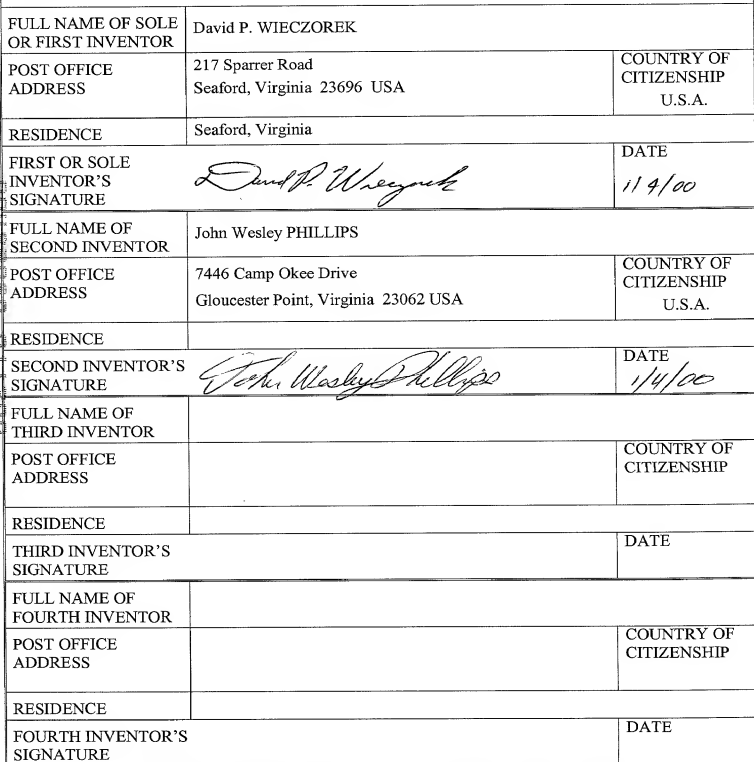 FULL NAME OF SOLE
OR FIRST INVENTOR
David P. WIECZOREK
POST OFFICE
ADDRESS
217 Sparrer Road
Seaford, Virginia 23696 USA
COUNTRY OF
CITIZENSHIP
U.S.A.
RESIDENCE
Seaford, Virginia
FIRST OR SOLE
INVENTOR'S
SIGNATURE
David P. Wieczorek
DATE
1/4/00
FULL NAME OF
SECOND INVENTOR
John Wesley PHILLIPS
POST OFFICE
ADDRESS
7446 Camp Okee Drive
Gloucester Point, Virginia 23062 USA
COUNTRY OF
CITIZENSHIP
U.S.A.
RESIDENCE
SECOND INVENTOR'S
SIGNATURE
John Wesley Phillips
DATE
1/4/00
FULL NAME OF
THIRD INVENTOR
POST OFFICE
ADDRESS
COUNTRY OF
CITIZENSHIP
RESIDENCE
THIRD INVENTOR'S
SIGNATURE
DATE
FULL NAME OF
FOURTH INVENTOR
POST OFFICE
ADDRESS
COUNTRY OF
CITIZENSHIP
RESIDENCE
FOURTH INVENTOR'S
SIGNATURE
DATE